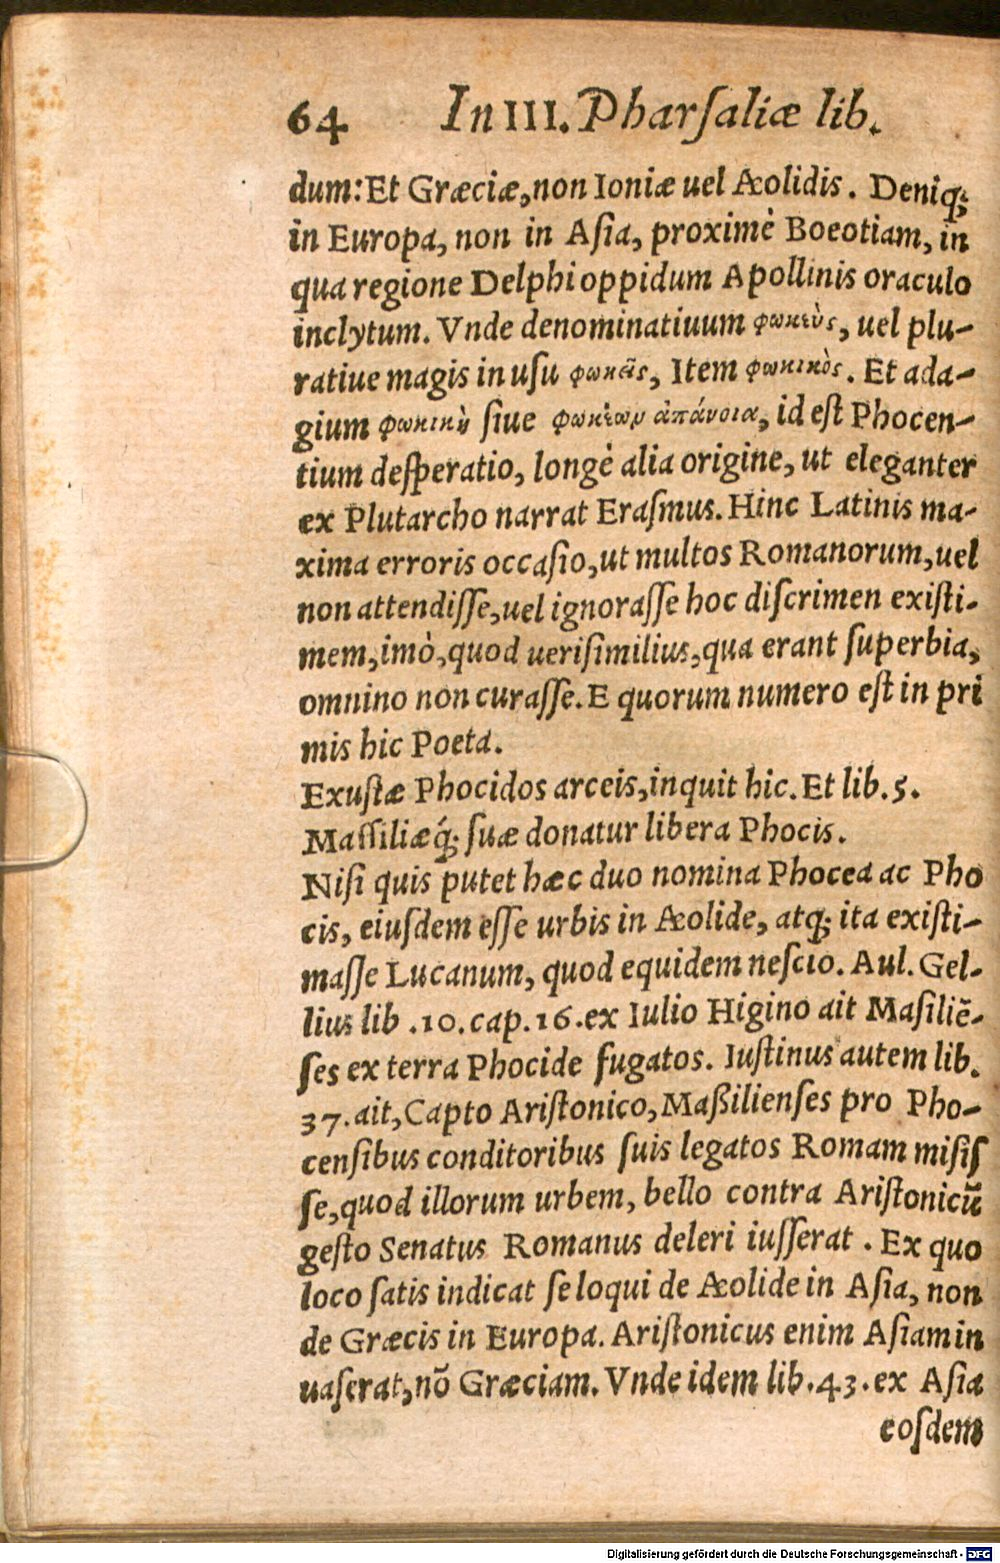 64 In III. Pharſaliæ lib.
dum: Et Græciæ, non Ioniæ uel Æolidis. Deniq́;
in Europa, non in Aſia, proximè Boeotiam, in
qua regione Delphi oppidum Apollinis oraculo
inclytum. Vnde denominatiuum φωκεὺς, uel plu-
ratiue magis in uſu φωκεῖς, Item φωκικὸς. Et ada-
gium φωκικὴ ſiue φωκέων ἀπόνοια, id eſt Phocen-
tium deſperatio, longè alia origine, ut eleganter
ex Plutarcho narrat Eraſmus. Hinc Latinis ma-
xima erroris occaſio, ut multos Romanorum, uel
non attendiſſe, uel ignoraſſe hoc diſcrimen exiſti-
mem, imò, quod ueriſimilius, qua erant ſuperbia,
omnino non curaſſe. E quorum numero eſt in pri
mis hic Poeta.
Exuſtæ Phocidos arceis, inquit hic. Et lib. 5.
Maſſiliæq́; ſuæ donatur libera Phocis.
Niſi quis putet hæc duo nomina Phocea ac Pho
cis, eiuſdem eſſe urbis in Æolide, atq; ita exiſti-
maſſe Lucanum, quod equidem neſcio. Aul. Gel-
lius lib .10. cap. 16. ex Iulio Higino ait Maſiliẽ-
ſes ex terra Phocide fugatos. Iuſtinus autem lib.
37. ait, Capto Ariſtonico, Maßilienſes pro Pho-
cenſibus conditoribus ſuis legatos Romam miſiſ
ſe, quod illorum urbem, bello contra Ariſtonicũ
geſto Senatus Romanus deleri iuſſerat. Ex quo
loco ſatis indicat ſe loqui de Æolide in Aſia, non
de Græcis in Europa. Ariſtonicus enim Aſiam in
uaſerat, nõ Græciam. Vnde idem lib. 43. ex Aſia
eoſdem
Digitalisierung gefördert durch die Deutsche Forschungsgemeinschaft - DFG